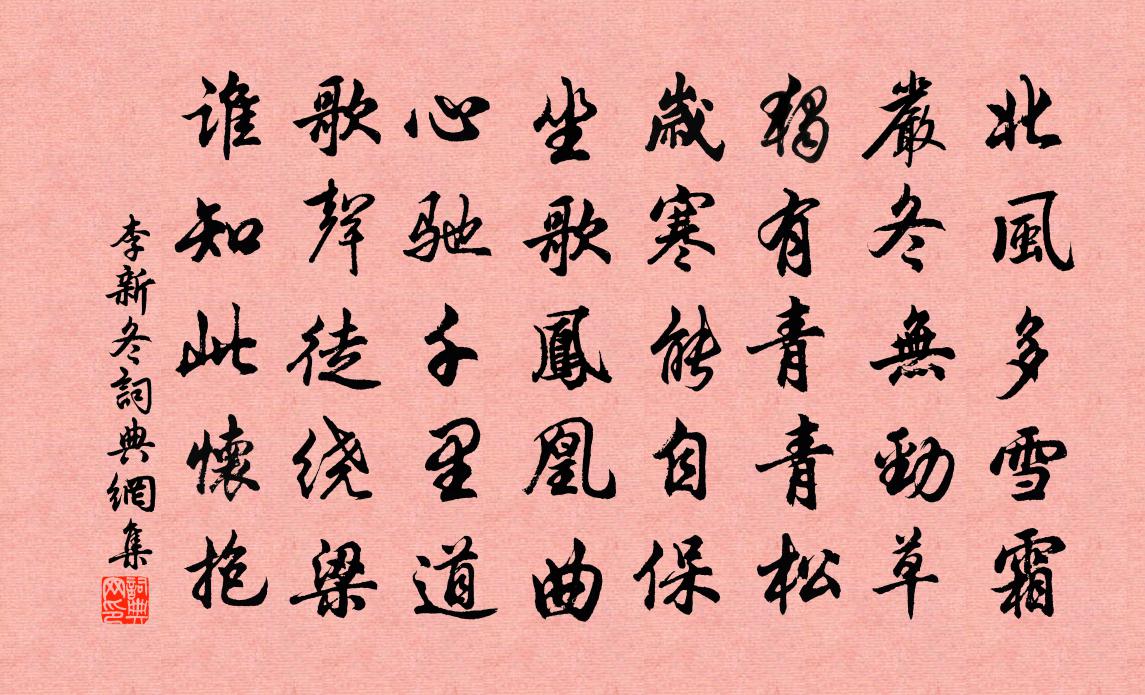 北風多雪霜
嚴冬無勁草
獨有青青松
歲寒能自保
坐歌鳳凰曲
心馳千里道
歌聲徒绕梁
谁知此懷抱
李新冬詞典網集
詞典网印